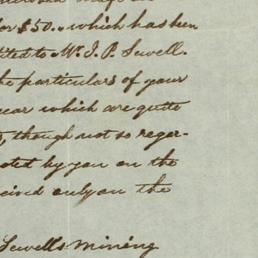 for $50. which has been
dited to Mr. J. P. Sewell.
he particulars of your
year which are quite
, though not so reger-
oted by you on the
ceived only on the
Sewells mining